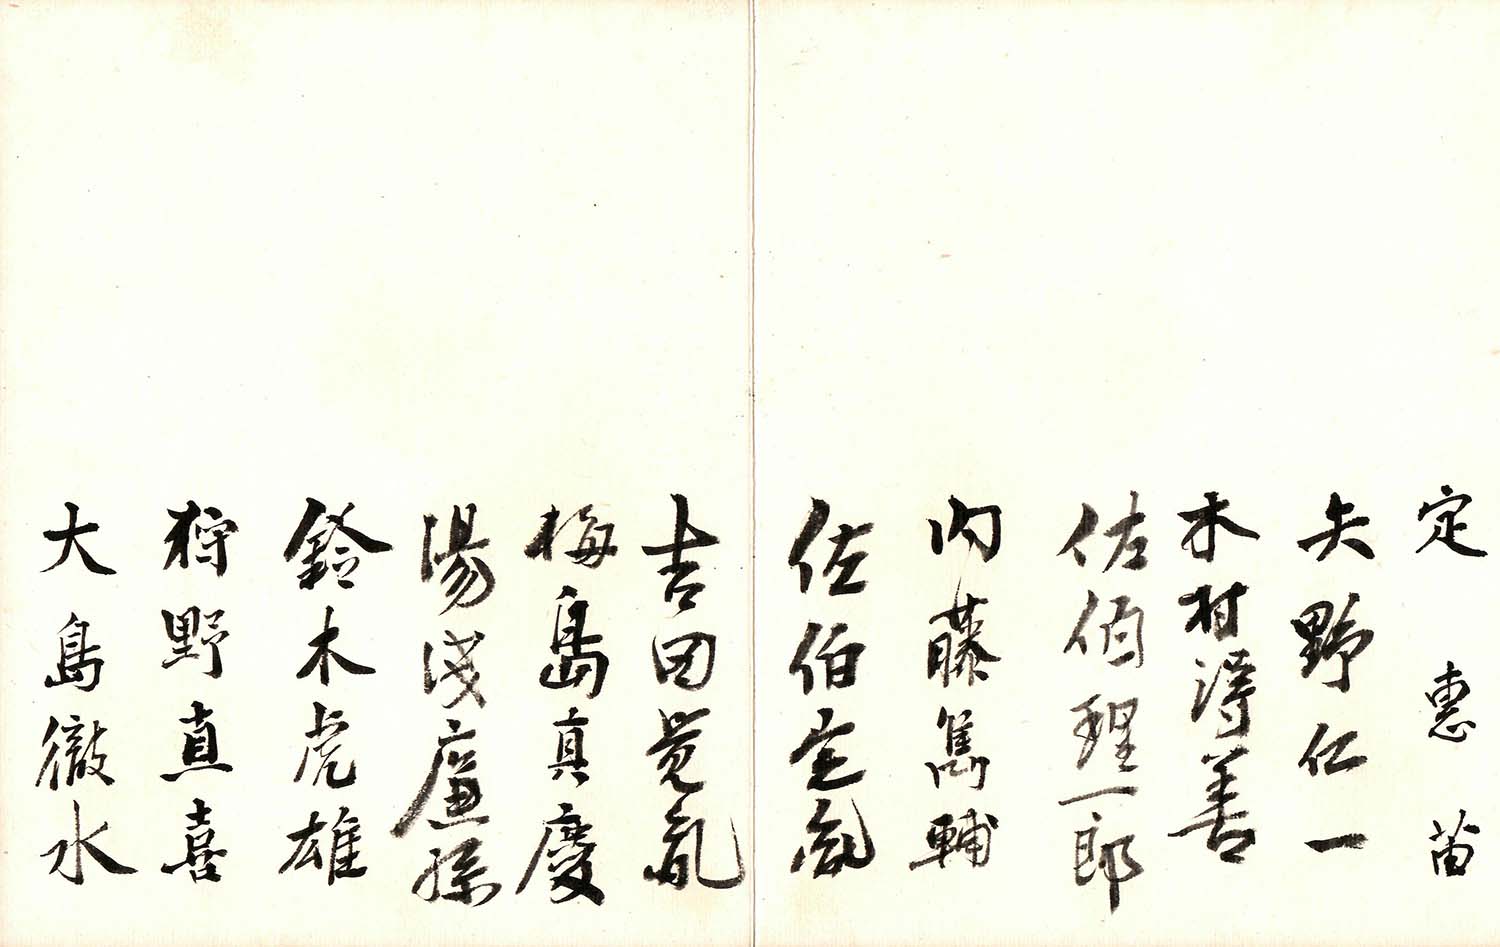 定惠苗
矢野仁一
木村得善
佐伯理一郎
内藤雋輔
佐伯定胤
吉田覚胤
梅島真慶
湯浅廉孫
鈴木虎雄
狩野直喜
大島徹水